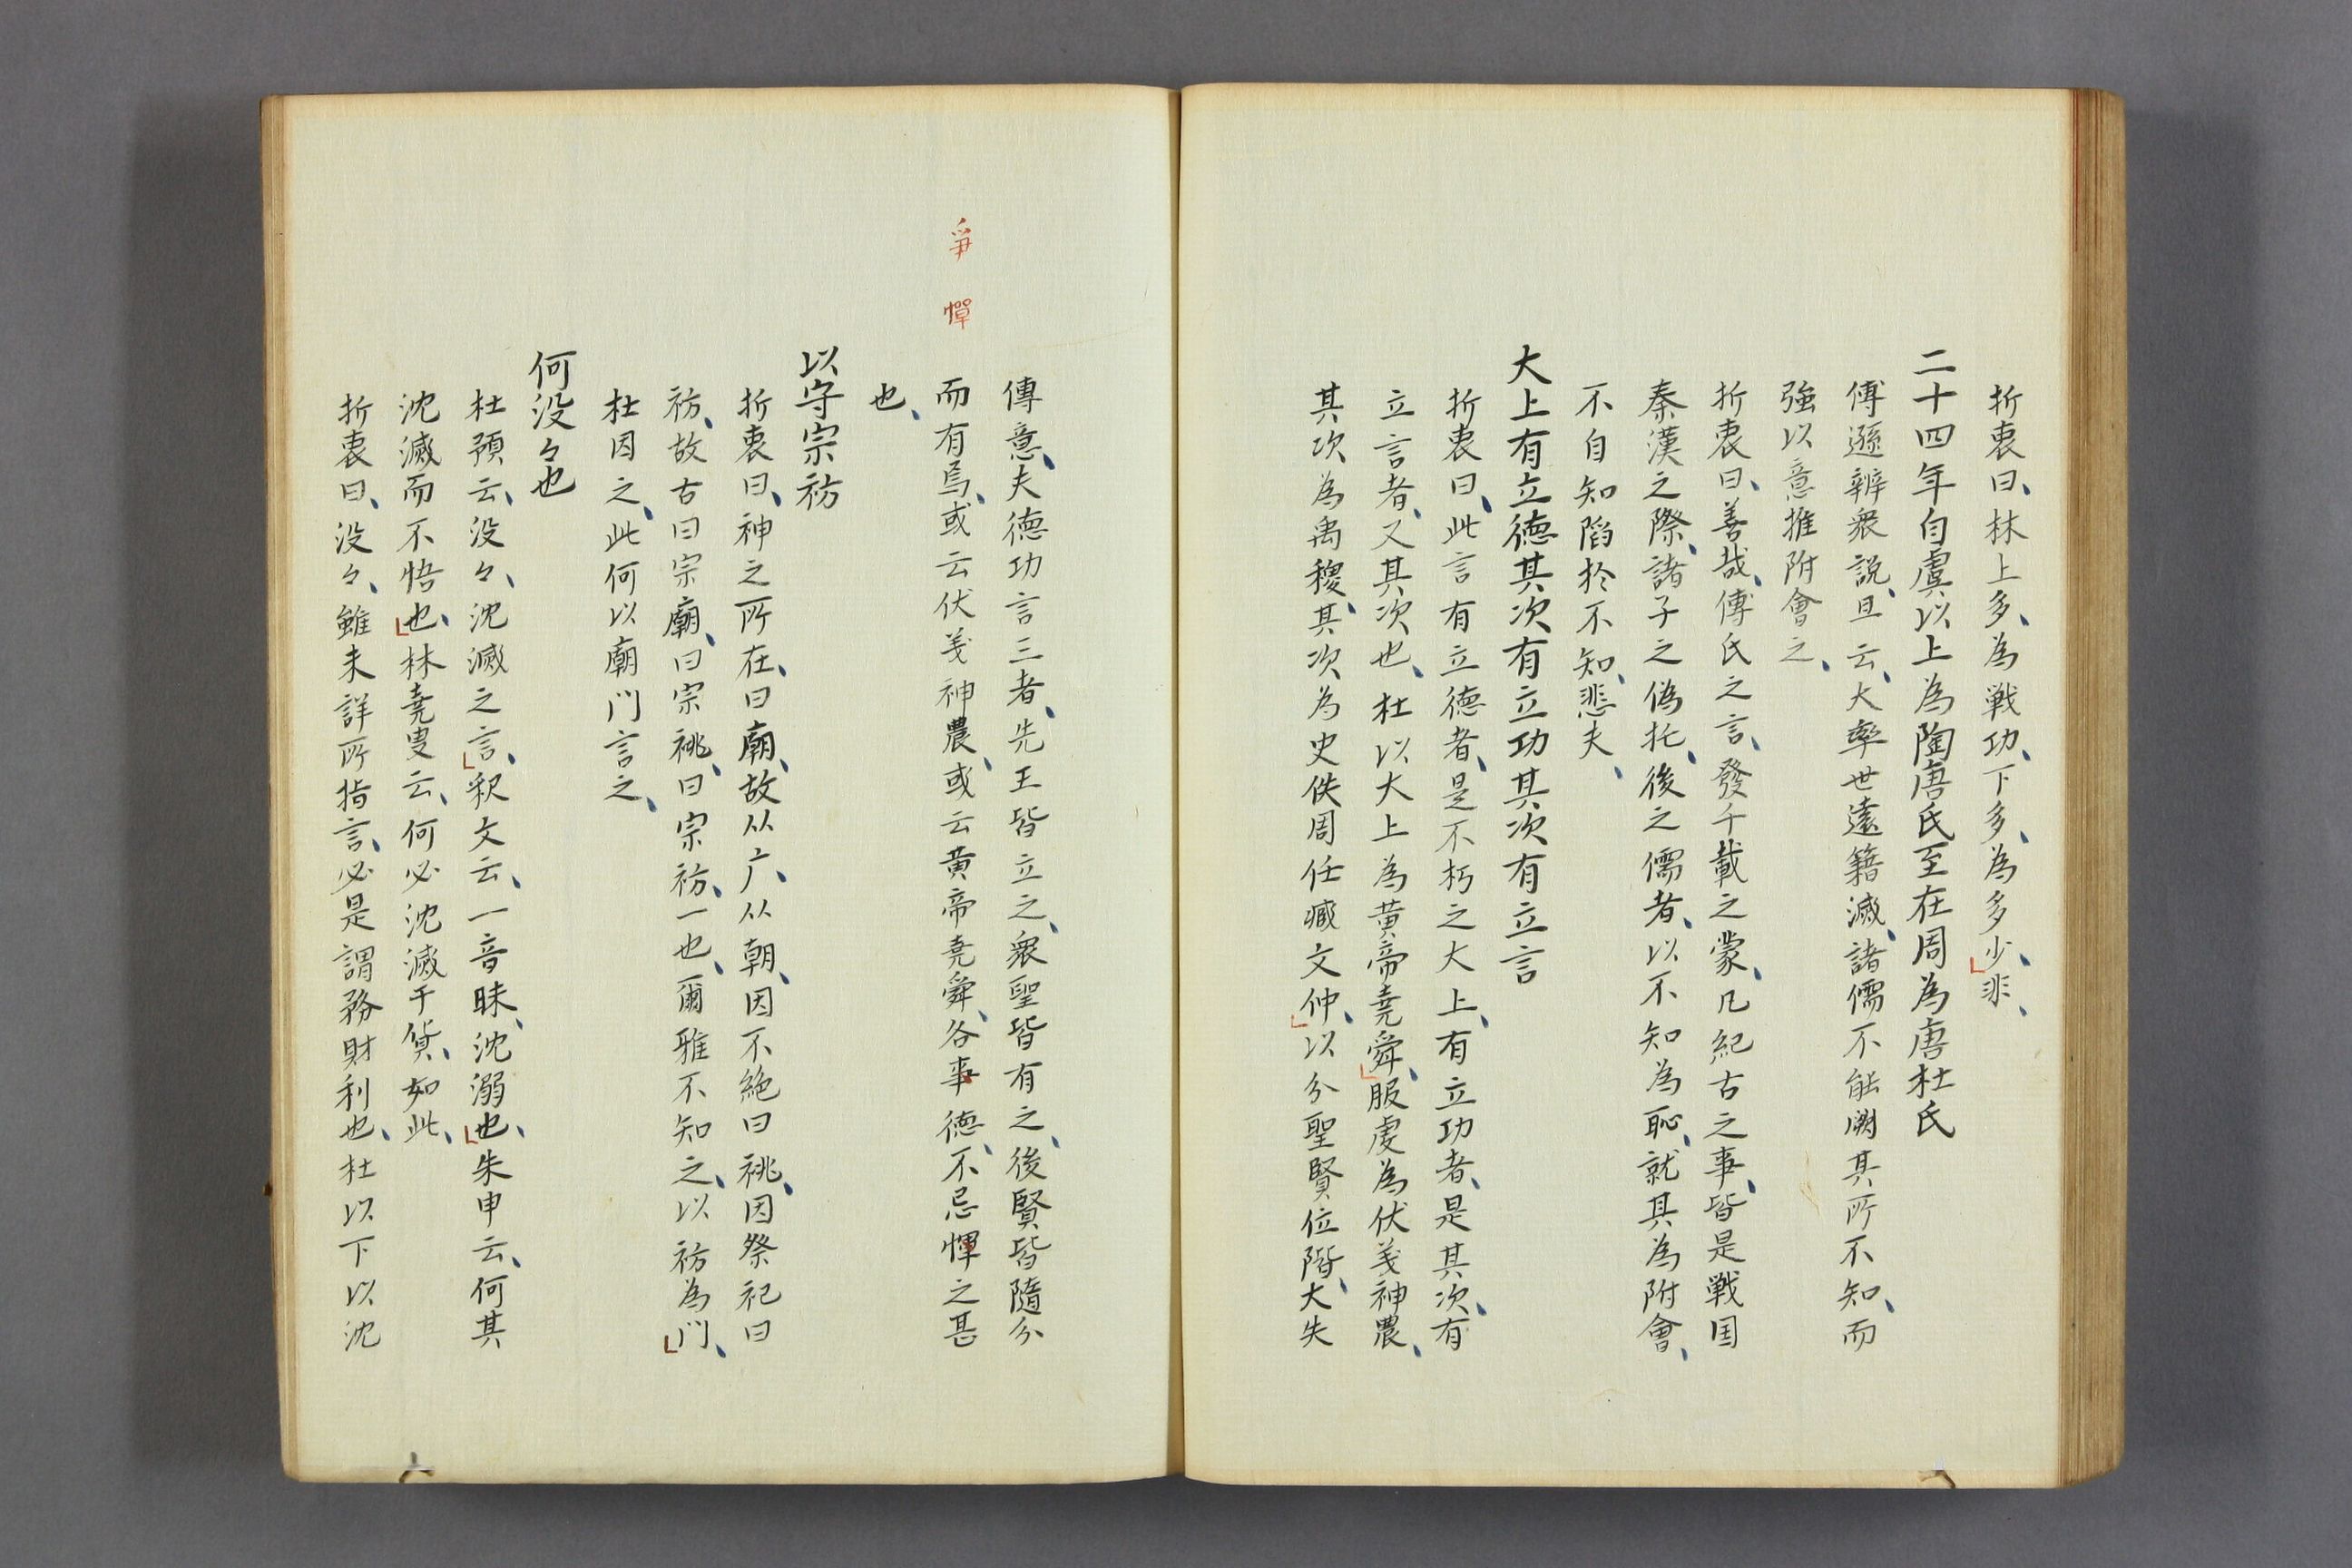 折衷曰、林上多、為戦功、下多、為多少」非、
二十四年自虞以上為陶唐氏至在周為唐杜氏
傅遜辨衆説、且云、大率世遠籍滅、諸儒不能闕其所不知、而
強以意推附會之、
折衷曰、善哉、傅氏之言、發千載之蒙、凡紀古之事、皆是戦国
秦漢之際、諸子之偽托、後之儒者、以不知為恥、就其為附會、
不自知陷於不知、悲夫、
大上有立徳其次有立功其次有立言
折衷曰、此言有立徳者、是不朽之大上、有立功者、是其次、有
立言者、又其次也、杜以大上為黄帝堯舜」、服虔為伏羲神農、
其次為禹稷、其次為史佚周任臧文仲」、以分聖賢位階、大失
傳意、夫徳功言三者、先王皆立之、衆聖皆有之、後賢皆隨分
而有焉、或云伏羲神農、或云黄帝堯舜、各事徳、不忌憚之甚
爭
憚
也、
以守宗祊
折衷曰、神之所在、曰廟、故从广、从朝、因不絶曰祧、因祭祀曰
祊、故古曰宗廟、曰宗祧、曰宗祊、一也、爾雅不知之、以祊為門」、
杜因之、此何以廟門言之、
何没々也
杜預云、没々、沈滅之言」、釈文云、一音昧、沈溺也」、朱申云、何其
沈滅而不悟也」、林堯叟云、何必沈滅于貨、如此、
折衷曰、没々、雖未詳所指言、必是謂務財利也、杜以下以沈